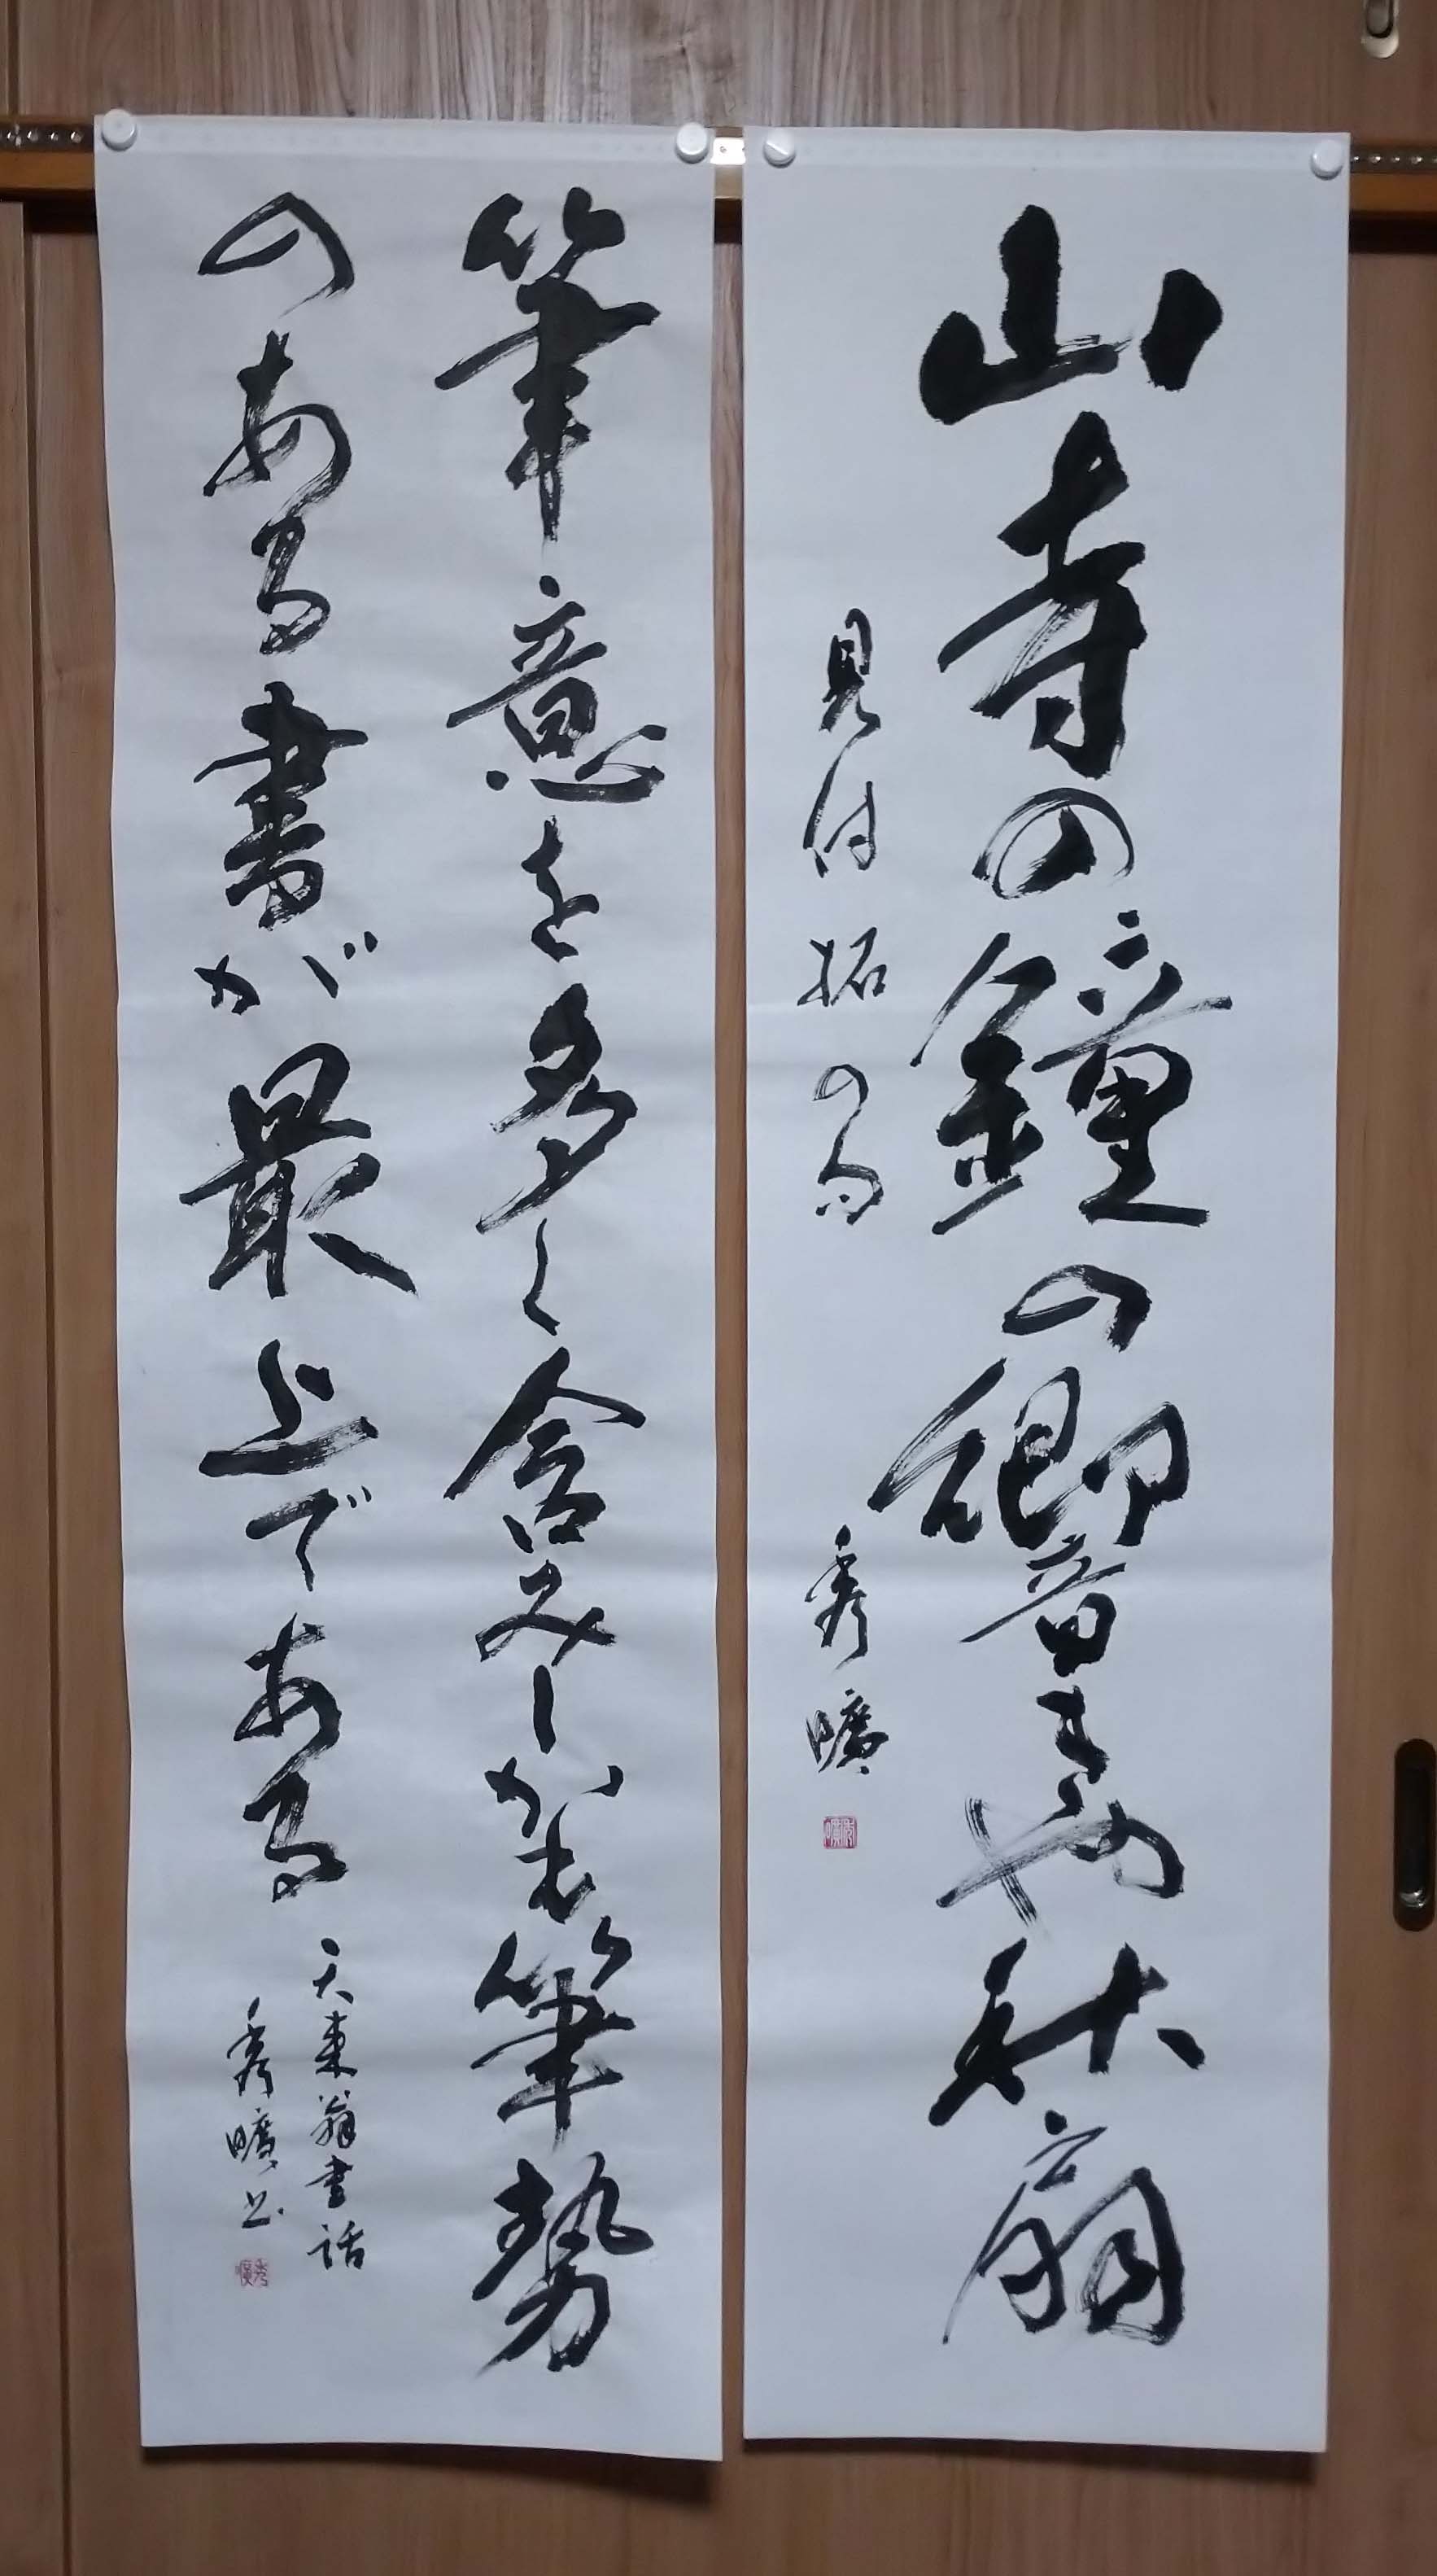 山寺の鐘の響きや秋扇
見付拓の句
秀曠
筆意を多く含みしかも筆勢
のある書が最上である
天来翁書話
秀曠書